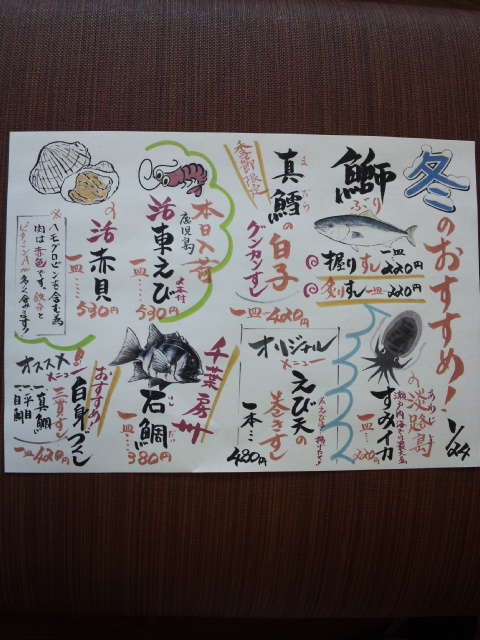 冬のおすすめ! 1/24
鰤
ぶり
握りすし 一皿…220円
炙りすし 一皿…220円
季節限定
真鱈の白子
まだら
グンカンすし
一皿…420円
本日入荷
鹿児島
活車えび
一皿……530円
活赤貝
一皿……530円
※ハモグロビンを含む為
肉は赤色です。鉄分と
ビタミンAが多く含みます!
あわじしま
の淡路島
すみイカ
一皿…220円
オリジナル
メニュー
えび天の
巻きすし
一本…480円
千葉房州
石鯛
いしだい
一皿……380円
おすすめ!
白身づくし
三貫すし
一皿…420円
オススメ
メニュー
真鯛
平目
目鯛